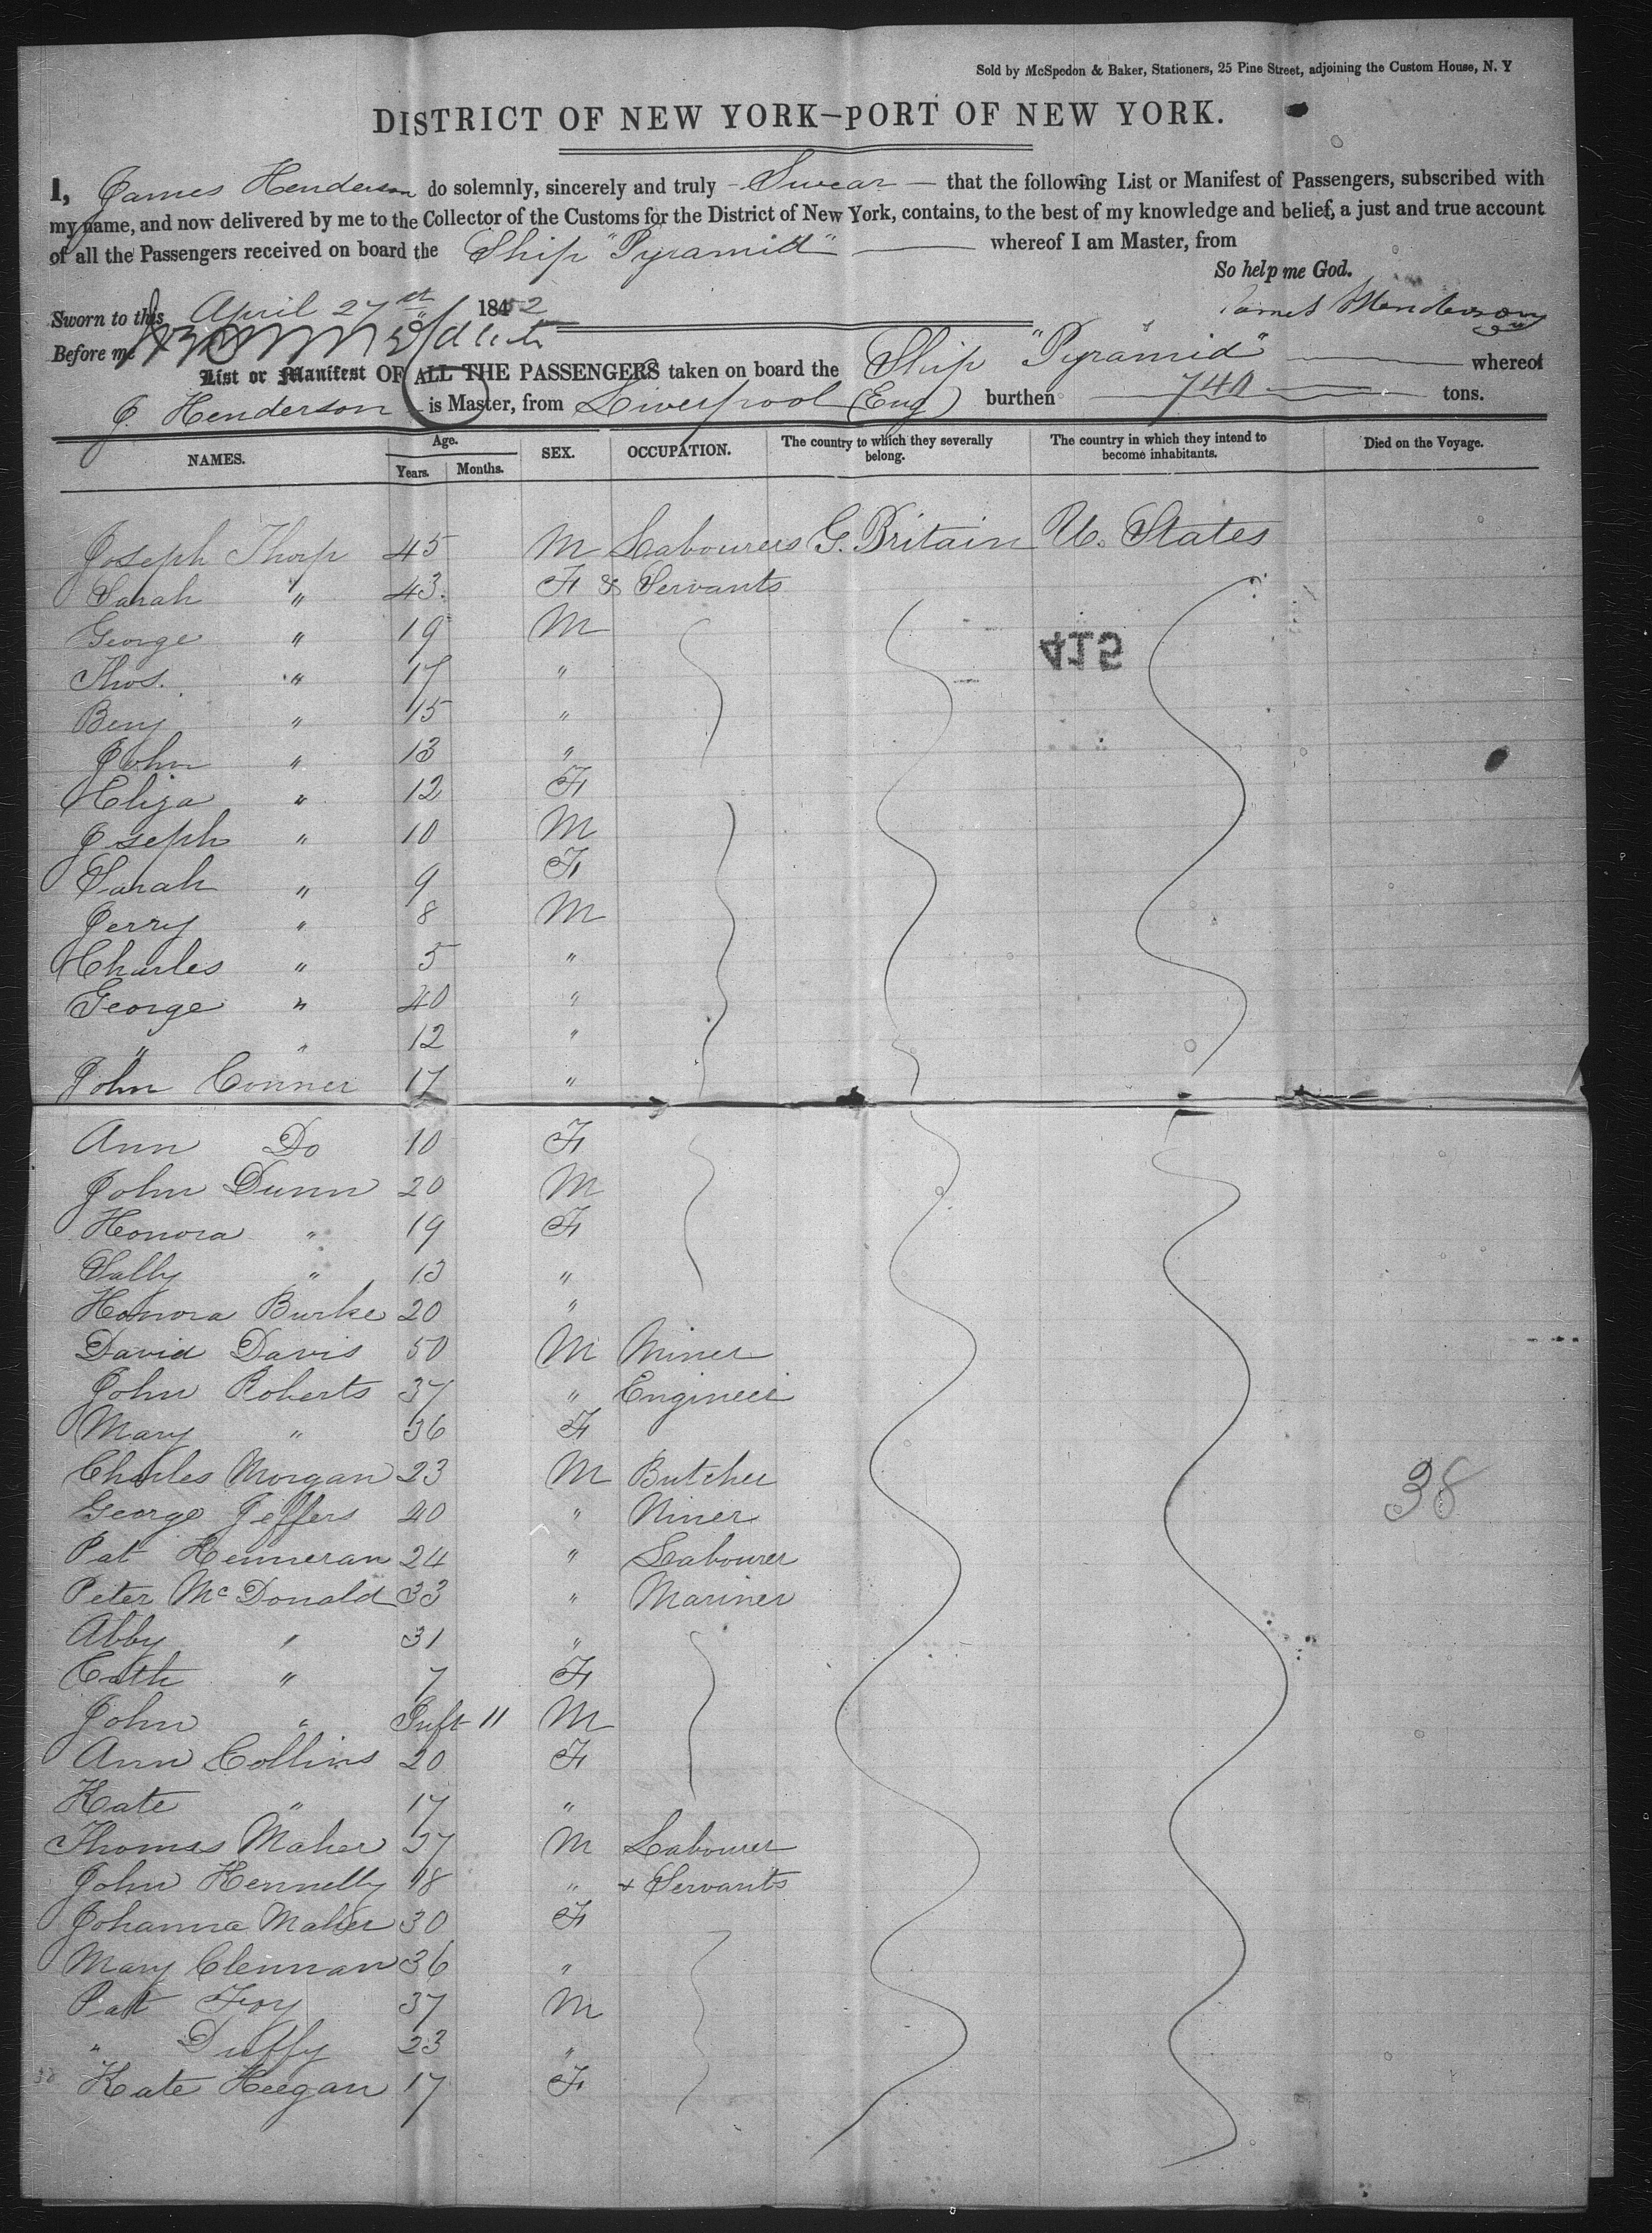 Sold by McSpedon & Baker, Stationers, 25 Pine Street, adjoining the Custom House, N. Y
DISTRICT OF NEW YORK—PORT OF NEW YORK.
I, James Henderson do solemnly, sincerely and truly - Swear - that the following List or Manifest of Passengers, subscribed with
my name, and now delivered by me to the Collector of the Customs for the District of New York, contains, to the best of my knowledge and belief, a just and true account
of all the Passengers received on board the Ship "Pyramid" whereof I am Master, from
So help me God.
Sworn to this April 27 1852
James Henderson
Before me
List or Manifest OF ALL THE PASSENGERS taken on board the Ship "Pyramid" whereof
J. Henderson is Master, from Liverpool (Eng) burthen 740 tons.
NAMES. Age. Years. Months. SEX. OCCUPATION. The country to which they severally belong. The country in which they intend to become inhabitants. Died on the Voyage.
Joseph Thorp 45 M Labourers G. Britain U. States
Sarah " 43 F & Servants
George " 19 M
415
Thos. " 17 "
Benj " 15 "
John " 13 "
Eliza " 12 F
Joseph " 10 M
Sarah " 9 F
Jerry " 8 M
Charles " 5 "
George " 40 "
" " 12 "
John Conner 17 "
Ann Do 10 F
John Dunn 20 M
Honora " 19 F
Sally " 13 "
Honora Burke 20 "
David Davis 50 M Miner
John Roberts 37 " Engineer
Mary " 36 F
Charles Morgan 23 M Butcher
38
George Jeffers 40 " Miner
Pat Henneran 24 " Labourer
Peter McDonald 33 " Mariner
Abby " 31 "
Cath " 7 F
John " Inft 11 M
Ann Collins 20 F
Kate " 17 "
Thomas Maher 37 M Labourer
John Hennelly 18 " + Servants
Johanna Maher 30 F
Mary Clennan 36 "
Pat Foy 37 M
" Duffy 23 "
38 Kate Keegan 17 F